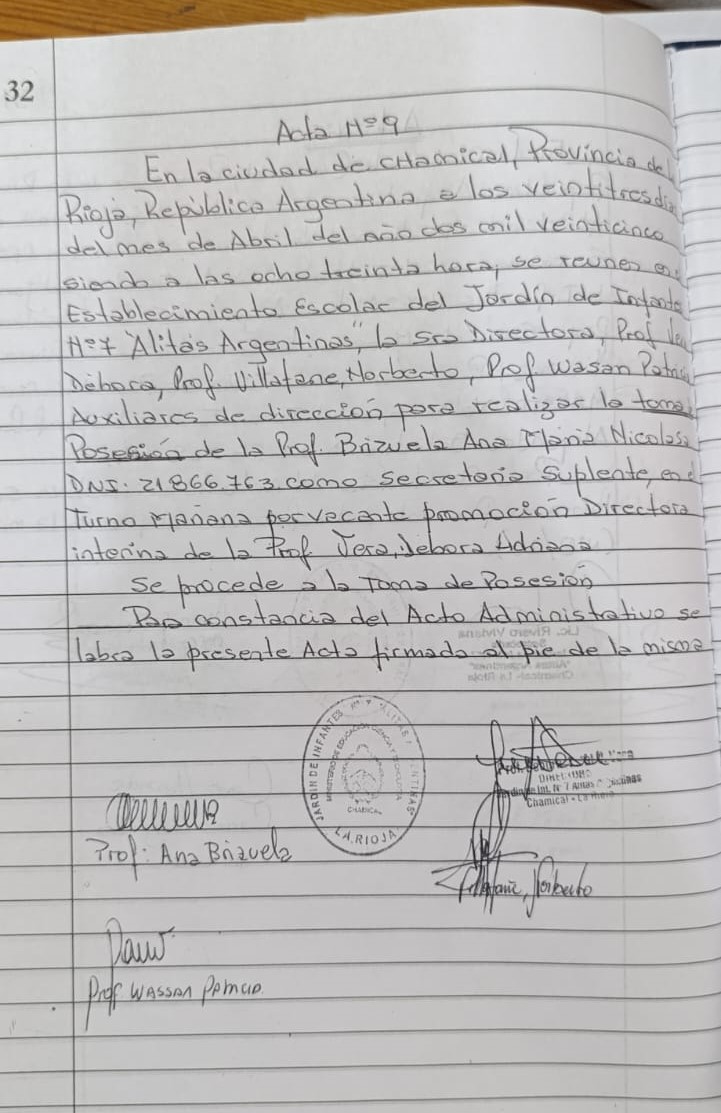 32
Acta Nº 9
En la ciudad de CHamical, Provincia de
Rioja, República Argentina a los veintitres di
del mes de Abril del año dos mil veinticinco
siendo a las ocho treinta hora, se reunen en
Establecimiento Escolar del Jardín de Infante
Nº 7 "Alitas Argentinas", la Sra Directora, Prof. Ve
Débora, Prof. Villafane, Norberto, Prof. Wasan Patric
Auxiliares de dirección para realizar la toma
Posesión de la Prof. Brizuela Ana María Nicolasa
DNI. 21866.763 como secretaria Suplente, en
Turno Mañana por vacante promoción Directora
interina de la Prof Vera, Debora Adriana
Se procede a la Toma de Posesión
Para constancia del Acto Administrativo se
labra la presente Acta firmada al pie de la misma
JARDIN DE INFANTES Nº 7 "ALITAS ENTINAS"
MINISTERIO DE EDUCACION CIENCIA Y TECNOLOGIA
CHAMICAL
LA RIOJA
DIRECTORA
Int. Nº 7 Alitas
Chamical - La Rioja
Prof: Ana Brizuela
Villafañe, Norberto
Prof WASSAN PATRICIA